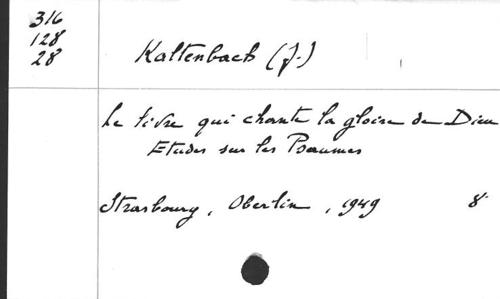 316
128
28
Kaltenbach (J.)
Le livre qui chante la gloire de Dieu
Etudes sur les Psaumes
Strasbourg, Oberlin, 1949 8°